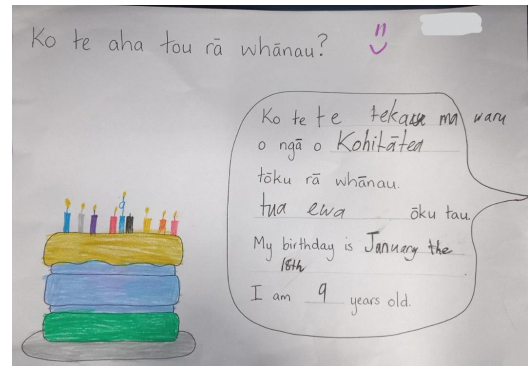 Ko te aha tou rā whānau?
Ko te te tekau ma waru
o ngā o Kohitātea
tōku rā whānau.
tua ewa ōku tau.
My birthday is January the
18th
I am 9 years old.
9